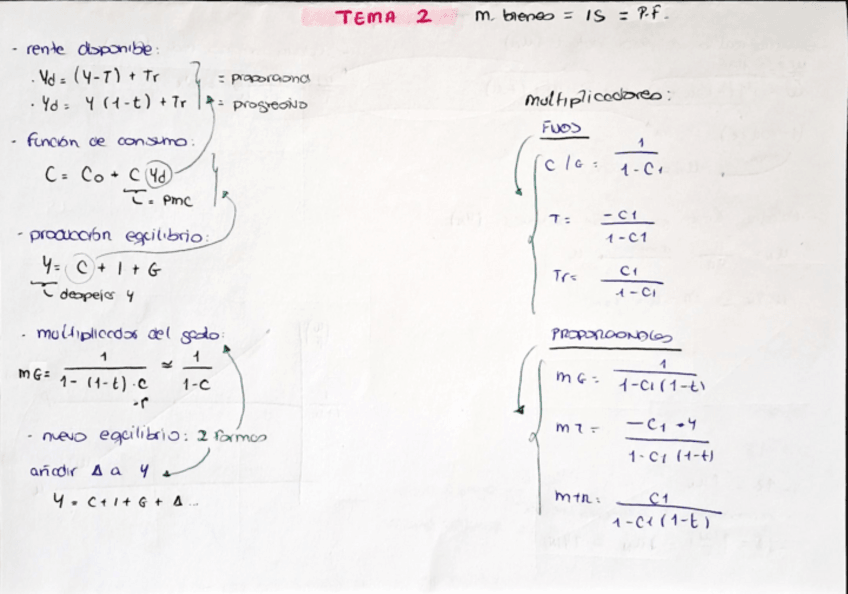 TEMA 2 m. bienes = IS = P.f.
- renta disponible:
· Yd = (Y-T) + Tr = proporcional
· Yd = Y (1-t) + Tr = progresivo
- función de consumo:
C = Co + C Yd
= PMC
- producción eqcilibrio:
Y = C + I + G
despejar Y
- multiplicador del gasto:
mG = 1 / 1 - (1-t) · c ≃ 1 / 1-c
- nuevo eqcilibrio: 2 formas
añadir Δ a Y
Y = C + I + G + Δ ...
multiplicadores:
FIJOS
C / G = 1 / 1 - C1
T = -C1 / 1 - C1
Tr = C1 / 1 - C1
PROPORCIONALES
mG = 1 / 1 - C1 (1-t)
mT = -C1 · Y / 1 - C1 (1-t)
mTR = C1 / 1 - C1 (1-t)